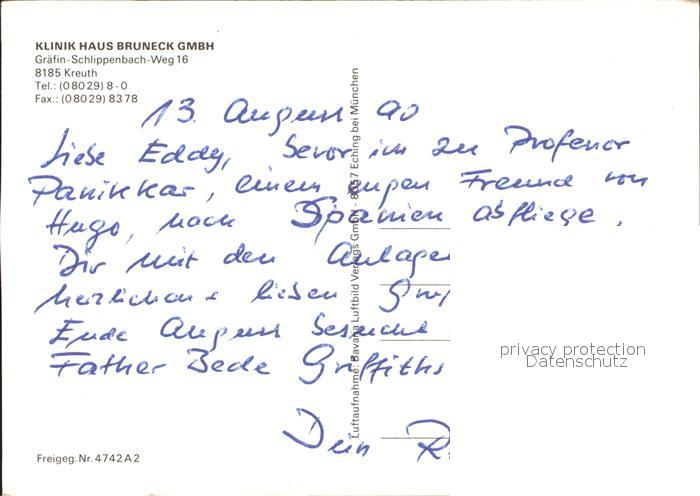 KLINIK HAUS BRUNECK GMBH
Gräfin-Schlippenbach-Weg 16
8185 Kreuth
Tel.: (08029) 8-0
Fax.: (08029) 8378
13. August 90
Liebe Eddy, bevor ich zu Professor
Panikkar, einem engen Freund von
Hugo, nach Spanien abfliege,
Dir mit den Anlagen
herzlichen + lieben
Ende August besucht
Father Bede Griffiths
Dein R.
Luftaufnahme: Bavaria Luftbild Verlags GmbH - 8057 Eching bei München
privacy protection
Datenschutz
Freigeg. Nr. 4742 A 2